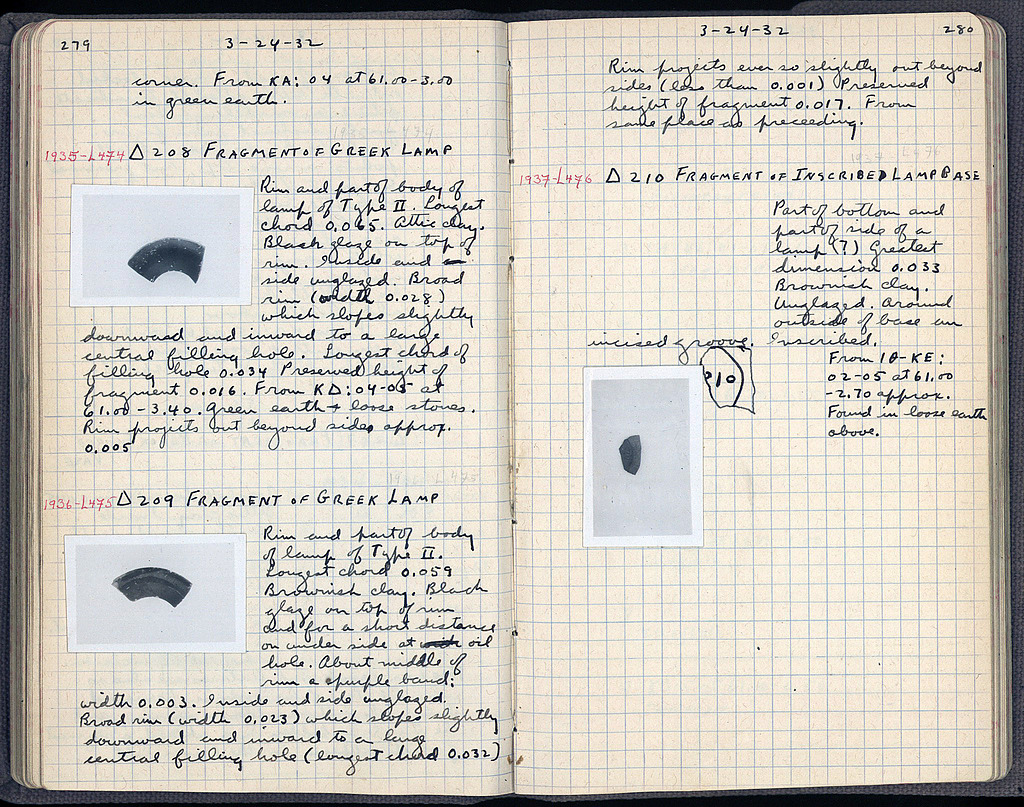 279
3-24-32
corner. From KA: 04 at 61.00-3.00
in green earth.
1935-L474 Δ 208 FRAGMENT OF GREEK LAMP
Rim and part of body of
lamp of Type II. Longest
chord 0.065. Attic clay.
Black glaze on top of
rim. Inside and
side unglazed. Broad
rim (width 0.028)
which slopes slightly
downward and inward to a large
central filling hole. Longest chord of
filling hole 0.034 Preserved height of
fragment 0.016. From KΔ: 04-05 at
61.00-3.40. Green earth + loose stones.
Rim projects out beyond sides approx.
0.005
1936-L475 Δ 209 FRAGMENT OF GREEK LAMP
Rim and part of body
of lamp of Type II.
Longest chord 0.059
Brownish clay. Black
glaze on top of rim
and for a short distance
on under side at oil
hole. About middle of
rim a purple band;
width 0.003. Inside and side unglazed.
Broad rim (width 0.023) which slopes slightly
downward and inward to a large
central filling hole (longest chord 0.032)
3-24-32
280
Rim projects ever so slightly out beyond
sides (less than 0.001) Preserved
height of fragment 0.017. From
same place as preceeding.
1937-L476 Δ 210 FRAGMENT OF INSCRIBED LAMP BASE
Part of bottom and
part of side of a
lamp (?) Greatest
dimension 0.033
Brownish clay.
Unglazed. Around
outside of base an
incised groove. Inscribed.
210
From ΙΘ-ΚΕ:
02-05 at 61.00
-2.70 approx.
Found in loose earth
above.